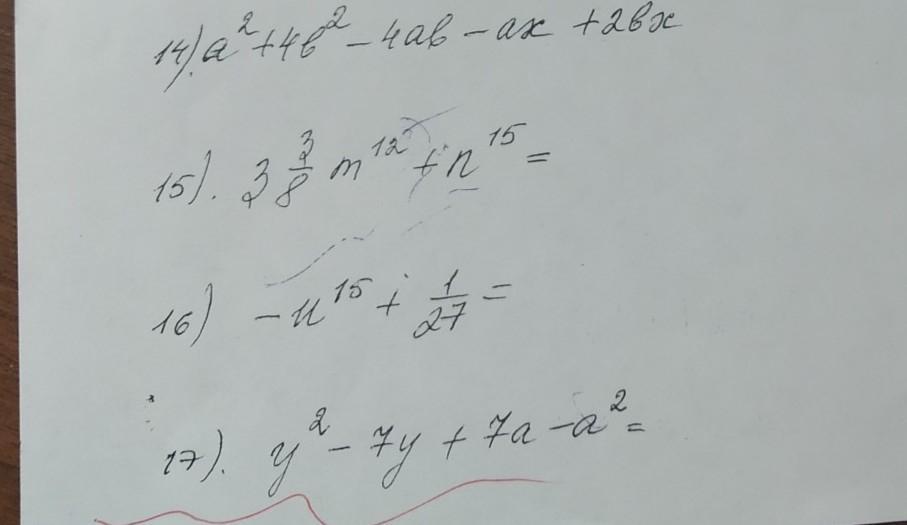 14) a² + 4b² − 4ab − ax + 2bx
15). 3 3/8 m¹² + n¹⁵ =
16) − u¹⁵ + 1/27 =
17). y² − 7y + 7a − a² =